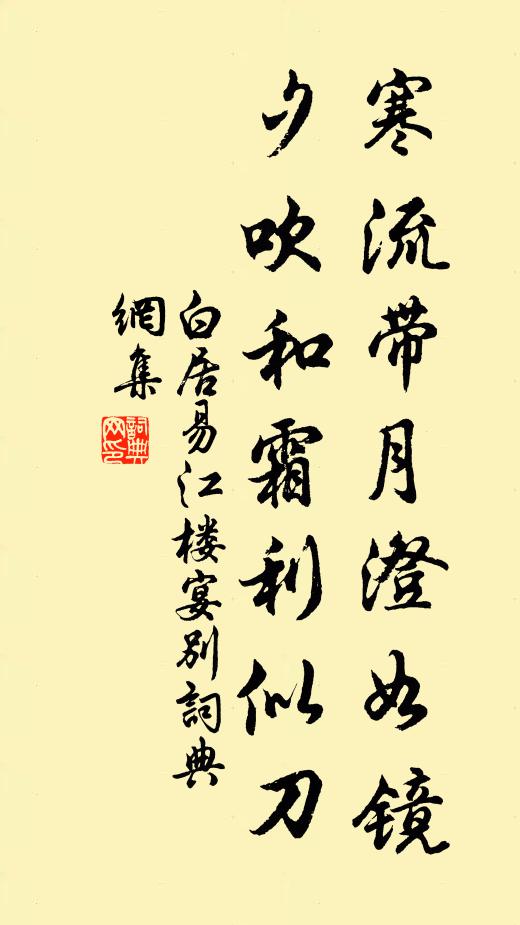 寒流带月澄如镜
夕吹和霜利似刀
白居易江楼宴别詞典
網集
詞典
网印